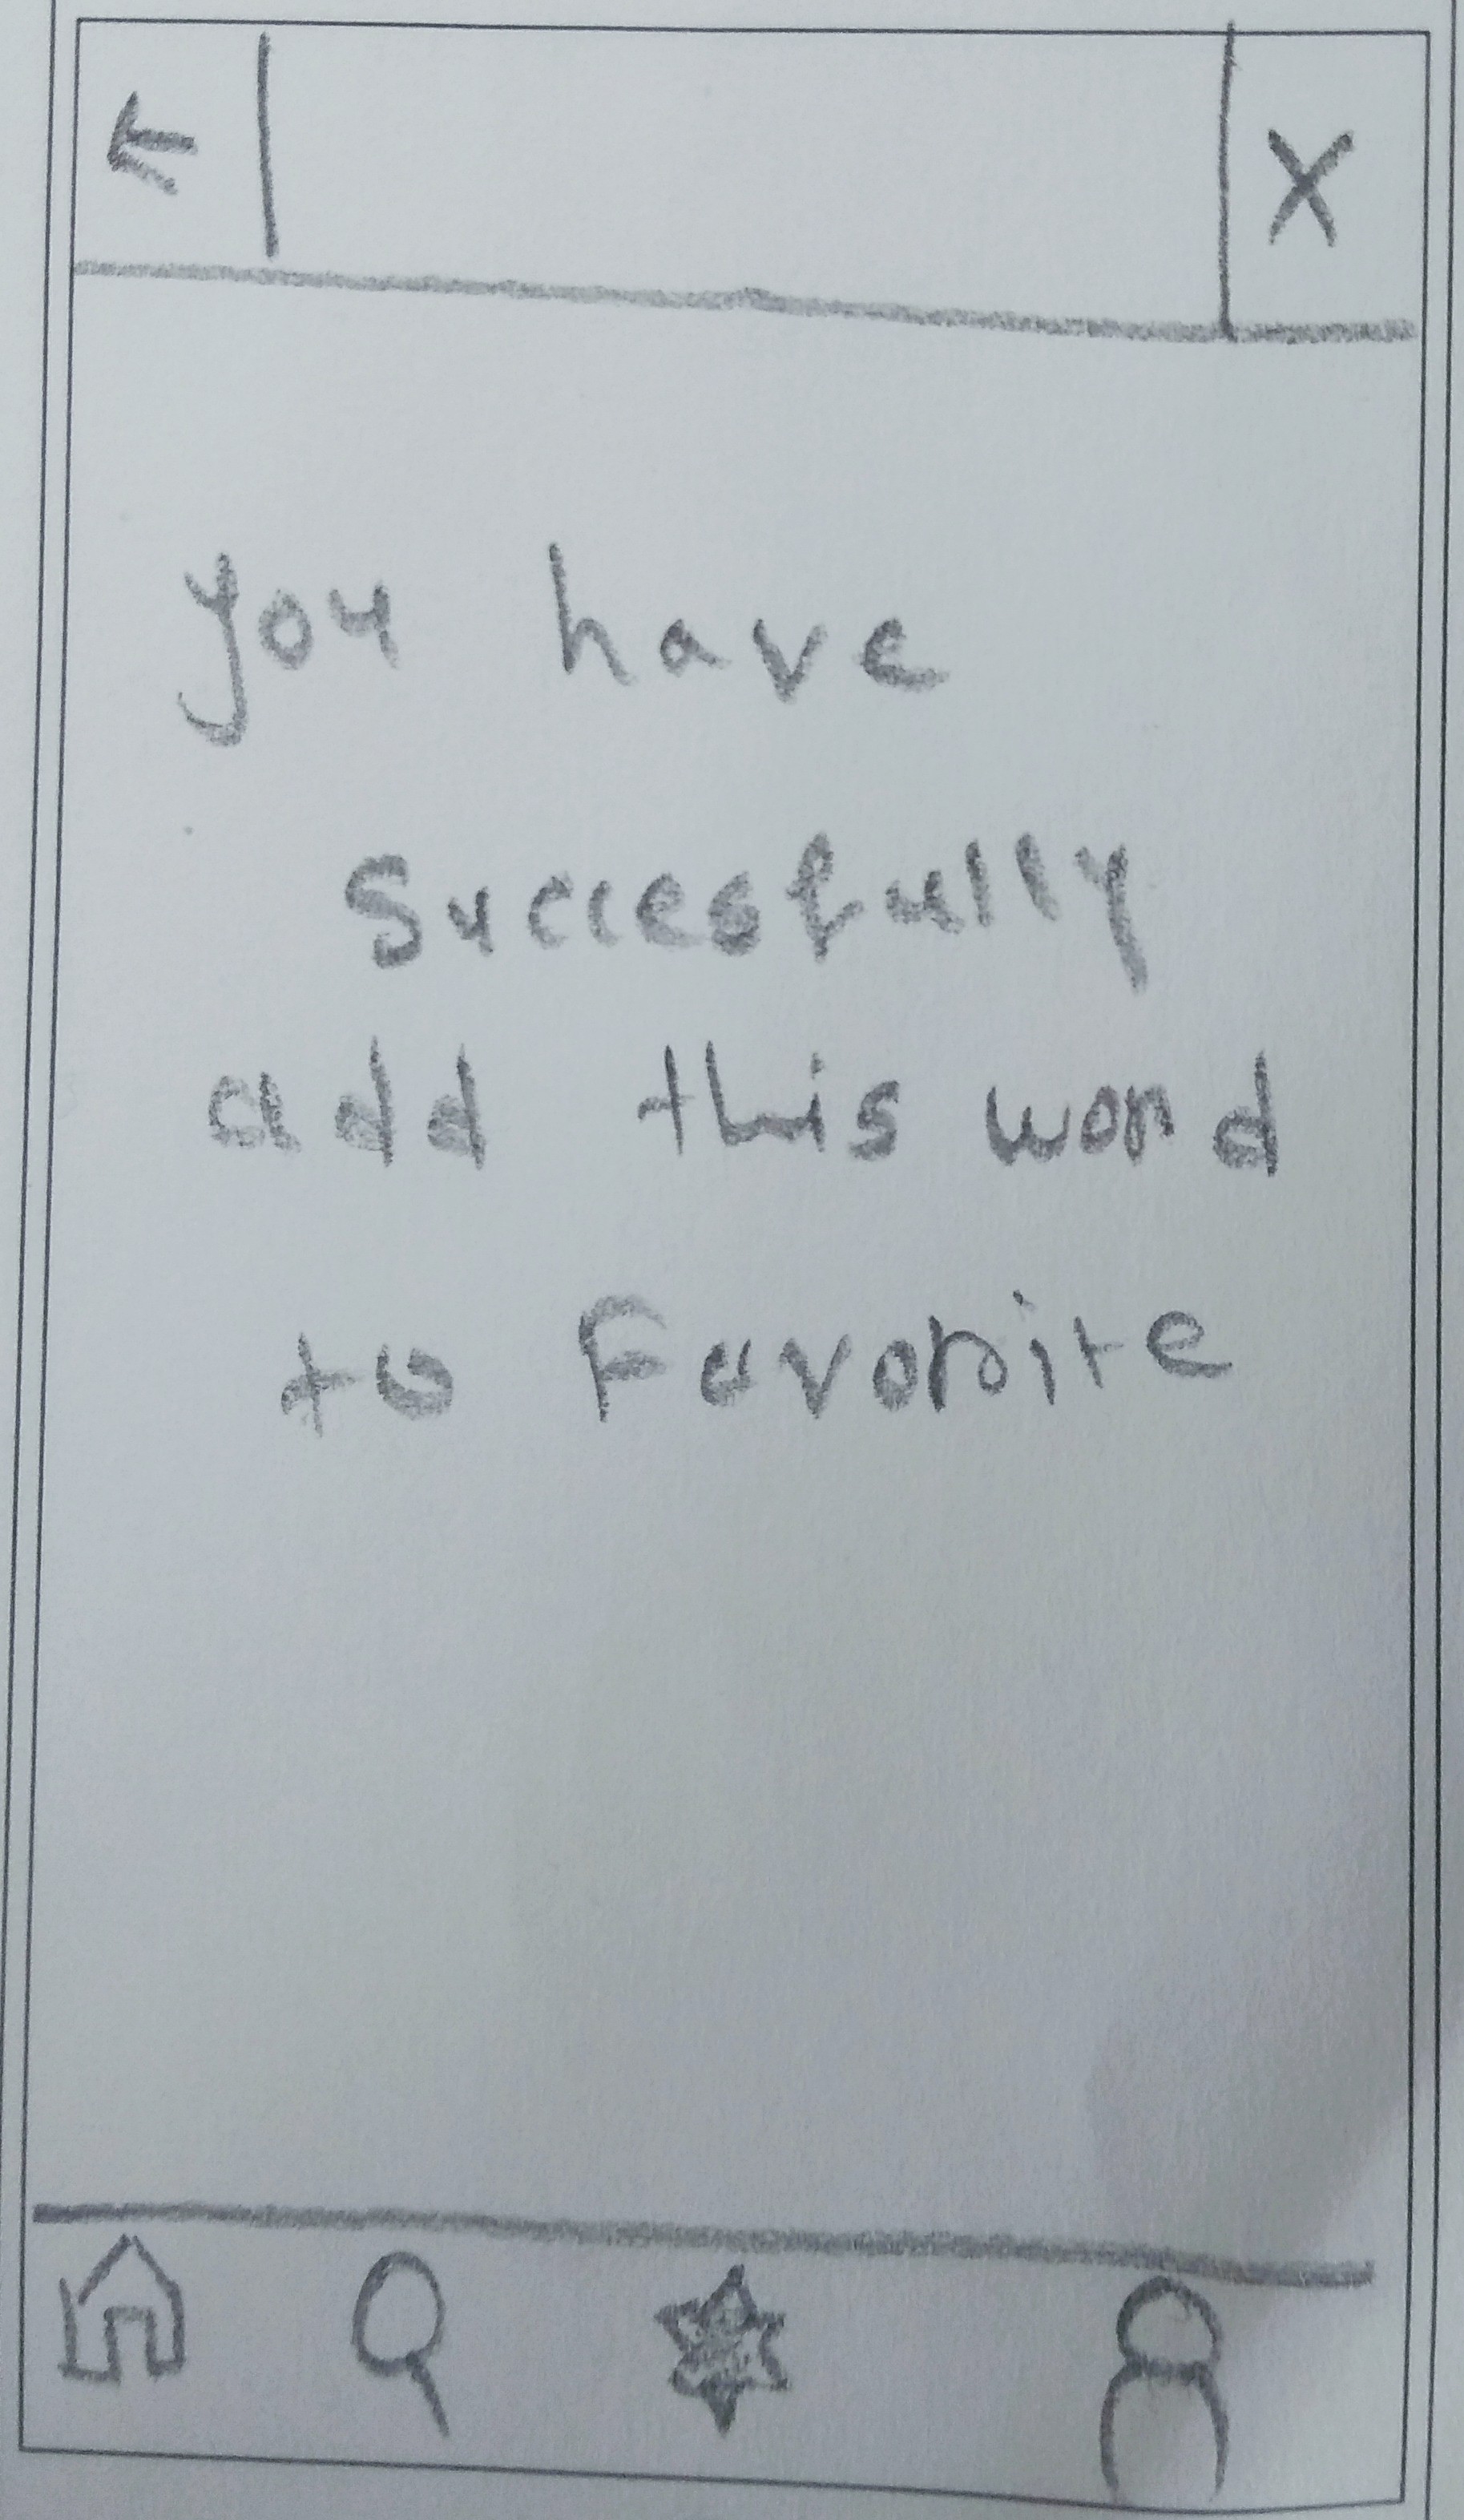 you have
succesfully
add this word
to Favorite